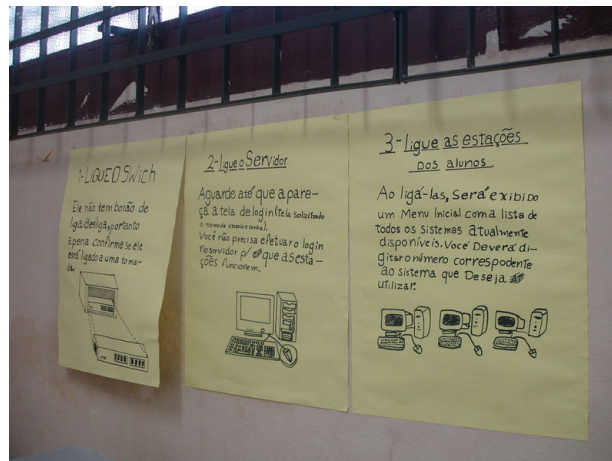 1- LIGUE O SWich
Ele não tem botão de
liga/desliga, portanto
apena confirme se ele
está ligado a uma toma-
da.
2- Ligue o Servidor
Aguarde até que apare-
ça a tela de login (tela solicitando
o nome de usuário e senha).
Você não precisa efetuar o login
no servidor p/ que as esta-
ções funcionem.
3- Ligue as estações
Dos alunos
Ao ligá-las, Será exibido
um Menu Inicial com a lista de
todos os sistemas atualmente
disponíveis. Você Deverá di-
gitar o número correspodente
ao sistema que Deseja
utilizar.